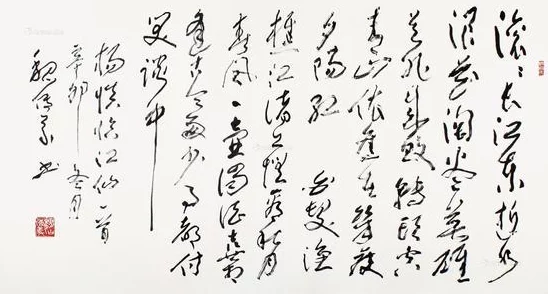 滚滚长江东逝水
浪花淘尽英雄
是非成败轉頭空
青山依舊在幾度
夕陽红 白髮渔
樵江渚上惯看秋月
春風一壶濁酒喜相
逢古今多少事都付
笑谈中
杨慎临江仙一首
辛卯冬月
魏 书